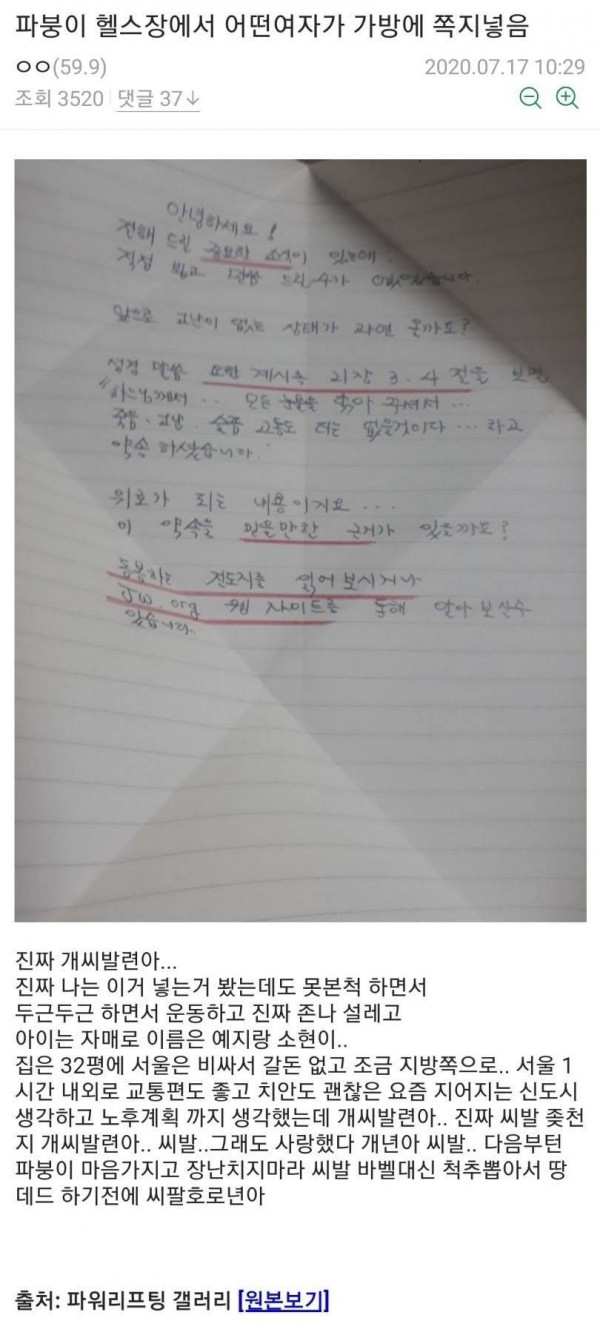 파붕이 헬스장에서 어떤여자가 가방에 쪽지넣음
ㅇㅇ(59.9)
2020.07.17 10:29
조회 3520 댓글 37↓
안녕하세요!
전해 드릴 중요한 소식이 있는데
직접 뵙고 말씀 드릴 수가 없었습니다.
앞으로 고난이 없는 상태가 과연 올까요?
성경 말씀 요한 계시록 21장 3.4 절을 보면
"하느님께서 ... 모든 눈물을 닦아 주셔서 ...
죽음.고남. 슬픔 고통도 더는 없을것이다 ... 라고
약속 하셨습니다.
위로가 되는 내용이지요 ...
이 약속을 믿을만한 근거가 있을까요?
동봉하는 전도지를 읽어 보시거나
JW.org 웹 사이트를 통해 알아 보실수
있습니다
진짜 개씨발련아...
진짜 나는 이거 넣는거 봤는데도 못본척 하면서
두근두근 하면서 운동하고 진짜 존나 설레고
아이는 자매로 이름은 예지랑 소현이..
집은 32평에 서울은 비싸서 갈돈 없고 조금 지방쪽으로.. 서울 1
시간 내외로 교통편도 좋고 치안도 괜찮은 요즘 지어지는 신도시
생각하고 노후계획 까지 생각했는데 개씨발련아.. 진짜 씨발 좆천
지 개씨발련아.. 씨발..그래도 사랑했다 개년아 씨발.. 다음부턴
파붕이 마음가지고 장난치지마라 씨발 바벨대신 척추뽑아서 땅
데드 하기전에 씨팔호로년아
출처: 파워리프팅 갤러리 [원본보기]